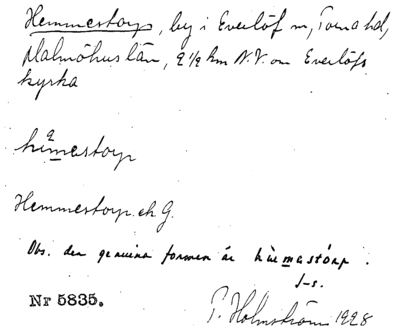 Hemmestorp, by i Everlöf sn, Torna hd,
Malmöhus län, 2 1/2 km N.V. om Everlöfs
kyrka
hemestorp
Hemmestorp. ek G.
Obs. den genuina formen är
J-s.
Nr 5835.
P. Holmström 1928